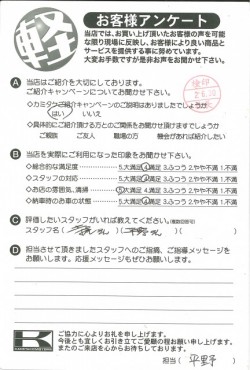 軽
お客様アンケート
当店では、お買い上げ頂いたお客様の声を可能
な限り現場に反映し、お客様により良い商品と
サービスを提供する事に努めています。
大変お手数ですが是非お声をお聞かせ下さい。
A 当店はご紹介を大切にしております。
ご紹介キャンペーンについてお聞かせ下さい。
◇カミタケご紹介キャンペーンのご説明はありましたでしょうか
はい いいえ
◇具体的にご紹介頂ける方とのご関係をお聞かせ頂けますでしょうか
ご親族 ご友人 職場の方 機会があれば紹介したい
B 当店を実際にご利用になった印象をお聞かせ下さい。
◇総合的な満足度 5.大満足 4.満足 3.ふつう 2.やや不満 1.不満
◇スタッフの対応 5.大満足 4.満足 3.ふつう 2.やや不満 1.不満
◇お店の雰囲気、清掃 5.大満足 4.満足 3.ふつう 2.やや不満 1.不満
◇納車時のお車の状態 5.大満足 4.満足 3.ふつう 2.やや不満 1.不満
C 評価したいスタッフがいれば教えてください。(複数回答可)
スタッフ名(
D 担当させて頂きましたスタッフへのご指摘、ご指導メッセージを
お聞かせ下さい。応援メッセージもぜひお願いします。
K
ご協力に心よりお礼を申し上げます。
今後とも宜しくお引き立てご愛顧の程お願い申し上げます。
またのご来店を心からお待ちしております。
担当( 平野 )